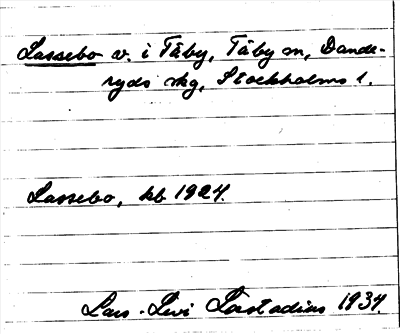 Lassebo v. i Täby, Täby sn, Dande-
ryds skg, Stockholms l.
Lassebo, kb 1924.
Lars-Levi Læstadius 1934.